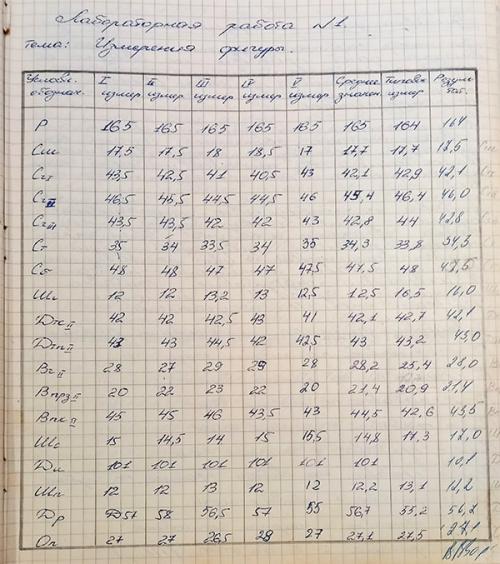 Лабораторная работа №1.
тема: Измерения фигуры.
Условн. обознач. I измер II измер III измер IV измер V измер Среднее значен. Типовы измер Резуль тат.
Р 165 165 165 165 165 165 164 164
Сш 17,5 17,5 18 18,5 17 17,7 17,7 18,5
СгI 43,5 42,5 41 40,5 43 42,1 42,9 42,1
СгII 46,5 45,5 44,5 44,5 46 45,4 46,4 46,0
СгIII 43,5 43,5 42 42 43 42,8 44 42,8
Ст 35 34 33,5 34 35 34,3 33,8 34,3
Сб 48 48 47 47 47,5 47,5 48 47,5
Шг 12 12 13,2 13 12,5 12,5 16,5 16,0
ДтсII 42 42 42,5 43 41 42,1 42,7 42,1
ДтпII 43 43 44,5 42 42,5 43 43,2 43,0
ВгII 28 27 29 29 28 28,2 25,4 28,0
ВпрзII 20 22 23 22 20 21,4 20,9 21,4
ВпкII 45 45 46 43,5 43 44,5 42,6 43,5
Шс 15 14,5 14 15 15,5 14,8 17,3 17,0
Ди 101 101 101 101 101 101 10,1
Шп 12 12 13 12 12 12,2 13,1 12,2
Др 57 58 56,5 57 55 56,7 55,2 56,2
Оп 27 27 26,5 28 27 27,1 27,5 27,1